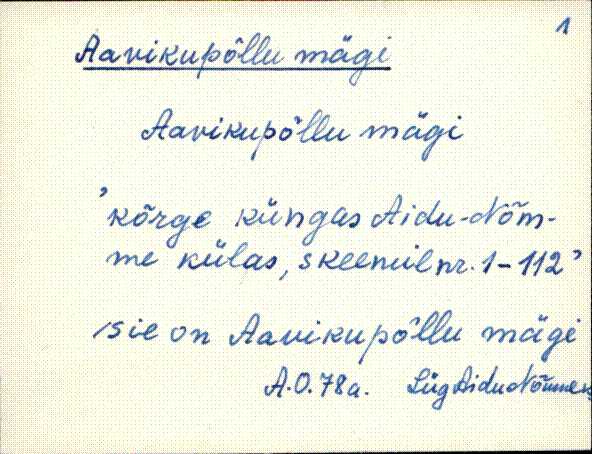 1
Aavikupõllu mägi
Aavikupõllu mägi
'kõrge küngas Aidu-Nõm-
me külas, skeemil nr. 1-112'
sie on Aavikupõllu mägi
A.O. 78a. Lüg Aidu Nõmme